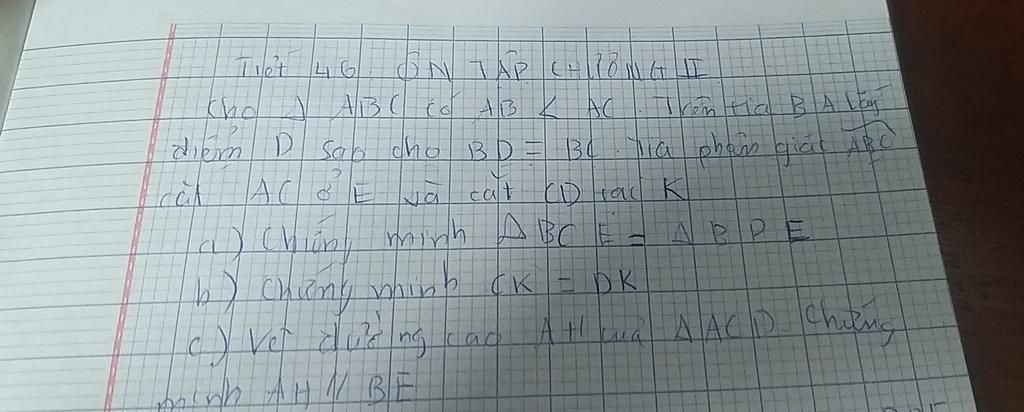 Tiết 46. ÔN TẬP CHƯƠNG II
Cho Δ ABC có AB < AC. Trên tia BA lấy
điểm D sao cho BD = BC. Tia phân giác ABC
cắt AC ở E và cắt CD tại K
a) Chứng minh Δ BCE = Δ BDE
b) Chứng minh CK = DK
c) Vẽ đường cao AH của Δ ACD. Chứng
minh AH // BE